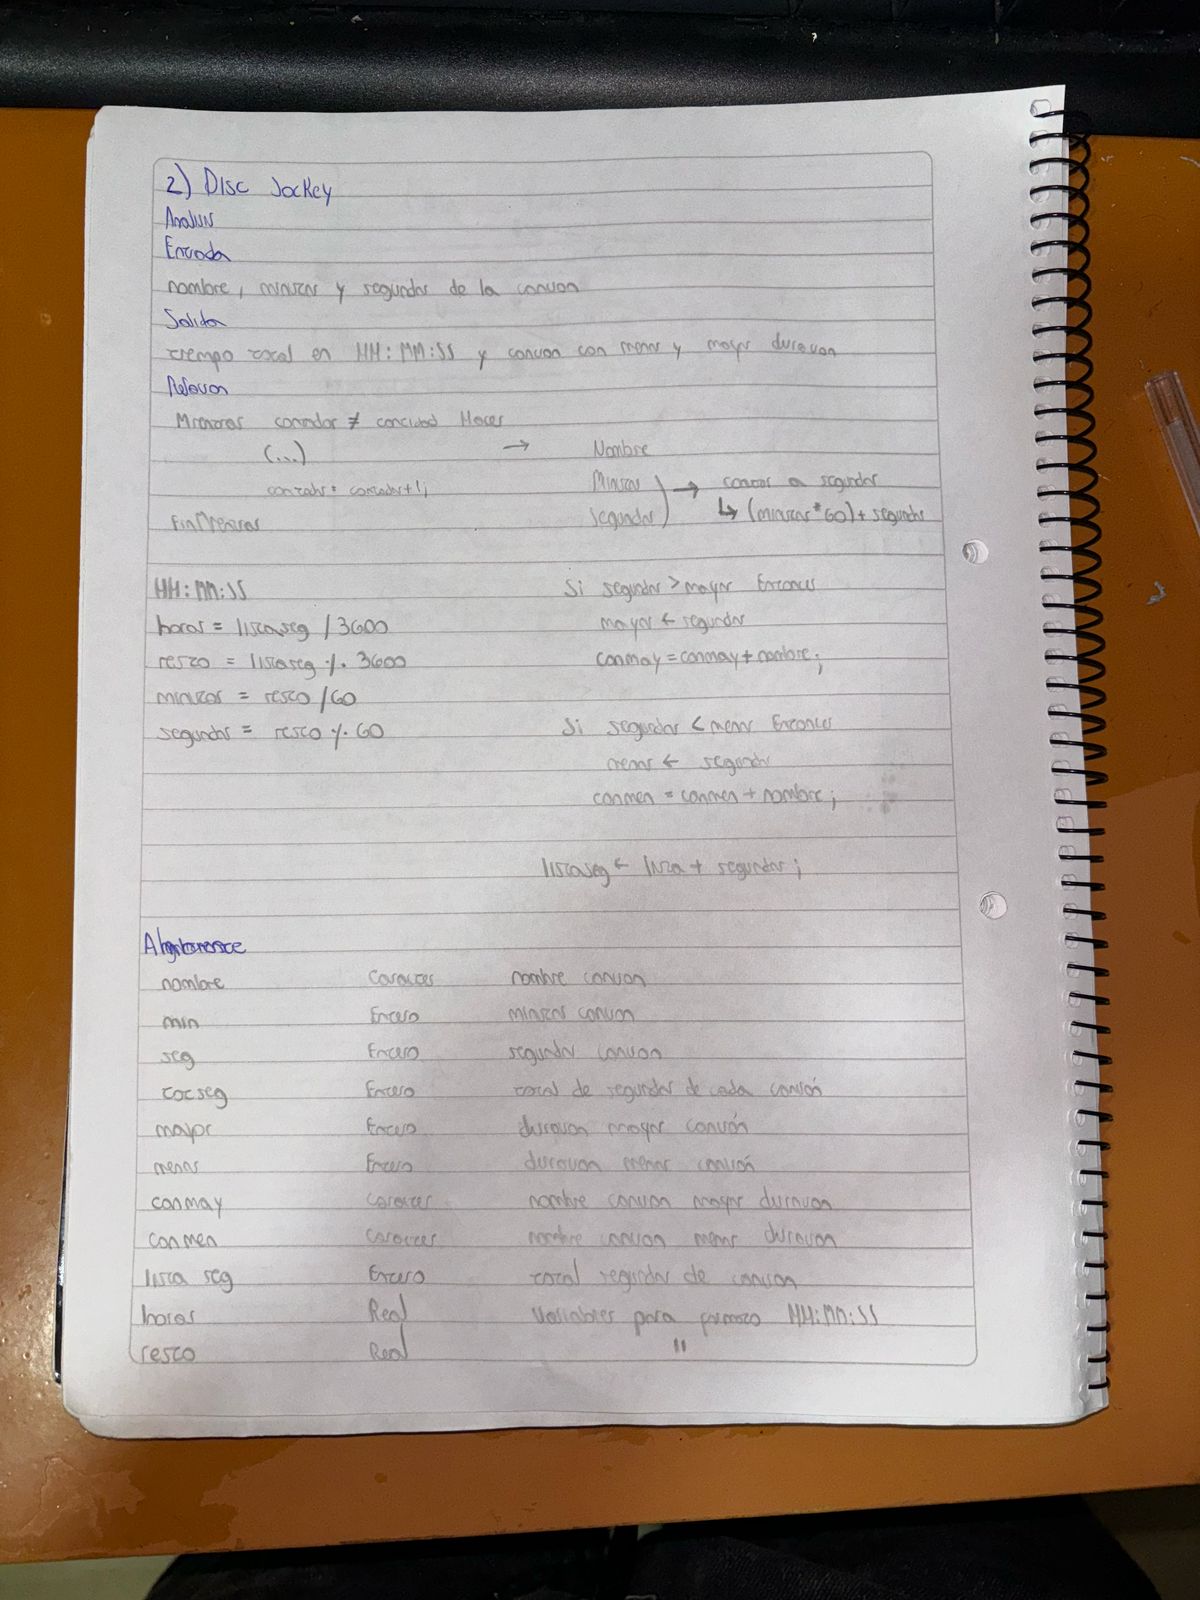 2) Disc Jockey
Analisis
Entrada
nombre, minutos y segundos de la cancion
Salida
tiempo total en HH:MM:SS y cancion con menor y mayor duracion
Relacion
Mientras contador ≠ cantidad Hacer
(...) → Nombre
contador = contador+1; Minutos ) → contar a segundos
FinMientras segundos ) ↳ (minutos*60)+segundos
HH:MM:SS Si segundos > mayor Entonces
horas = listaseg / 3600 mayor ← segundos
resto = listaseg % 3600 canmay = canmay + nombre;
minutos = resto / 60
segundos = resto % 60 Si segundos < menor Entonces
menor ← segundos
canmen = canmen + nombre;
listaseg ← lista + segundos;
Ambiente
nombre Caracter nombre cancion
min Entero minutos cancion
seg Entero segundos cancion
totseg Entero total de segundos de cada canción
mayor Entero duracion mayor canción
menor Entero duracion menor canción
canmay Caracter nombre cancion mayor duracion
canmen Caracter nombre cancion menor duracion
lista seg Entero total segundos de cancion
horas Real Variables para formato HH:MM:SS
resto Real "